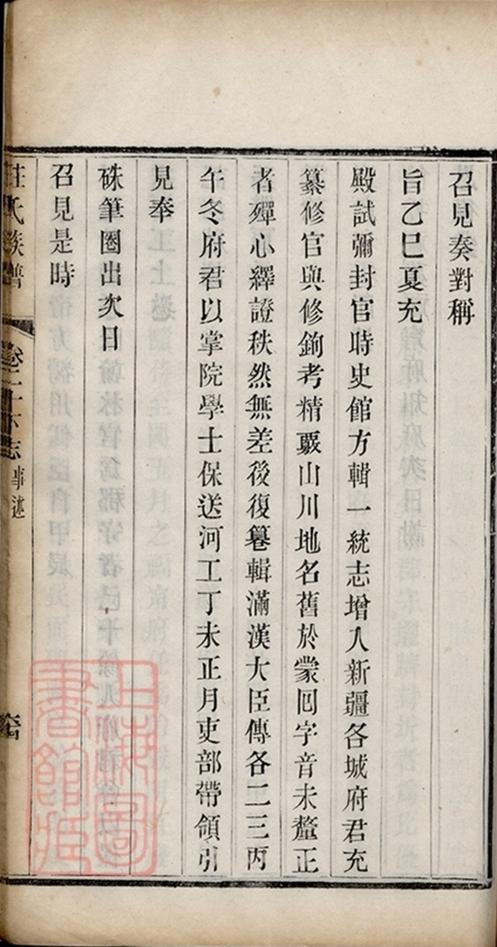 召見奏對稱
旨乙巳夏充
殿試彌封官時史館方輯一統志增入新疆各城府君充
纂修官與修鉤考精覈山川地名舊於蒙囘字音未釐正
者殫心繹證秩然無差後復纂輯滿漢大臣傳各二三丙
午冬府君以掌院學士保送河工丁未正月吏部帶領引
見奉
硃筆圈出次日
召見是時
莊氏族譜
卷二十下 志事述
上海圖
書館藏